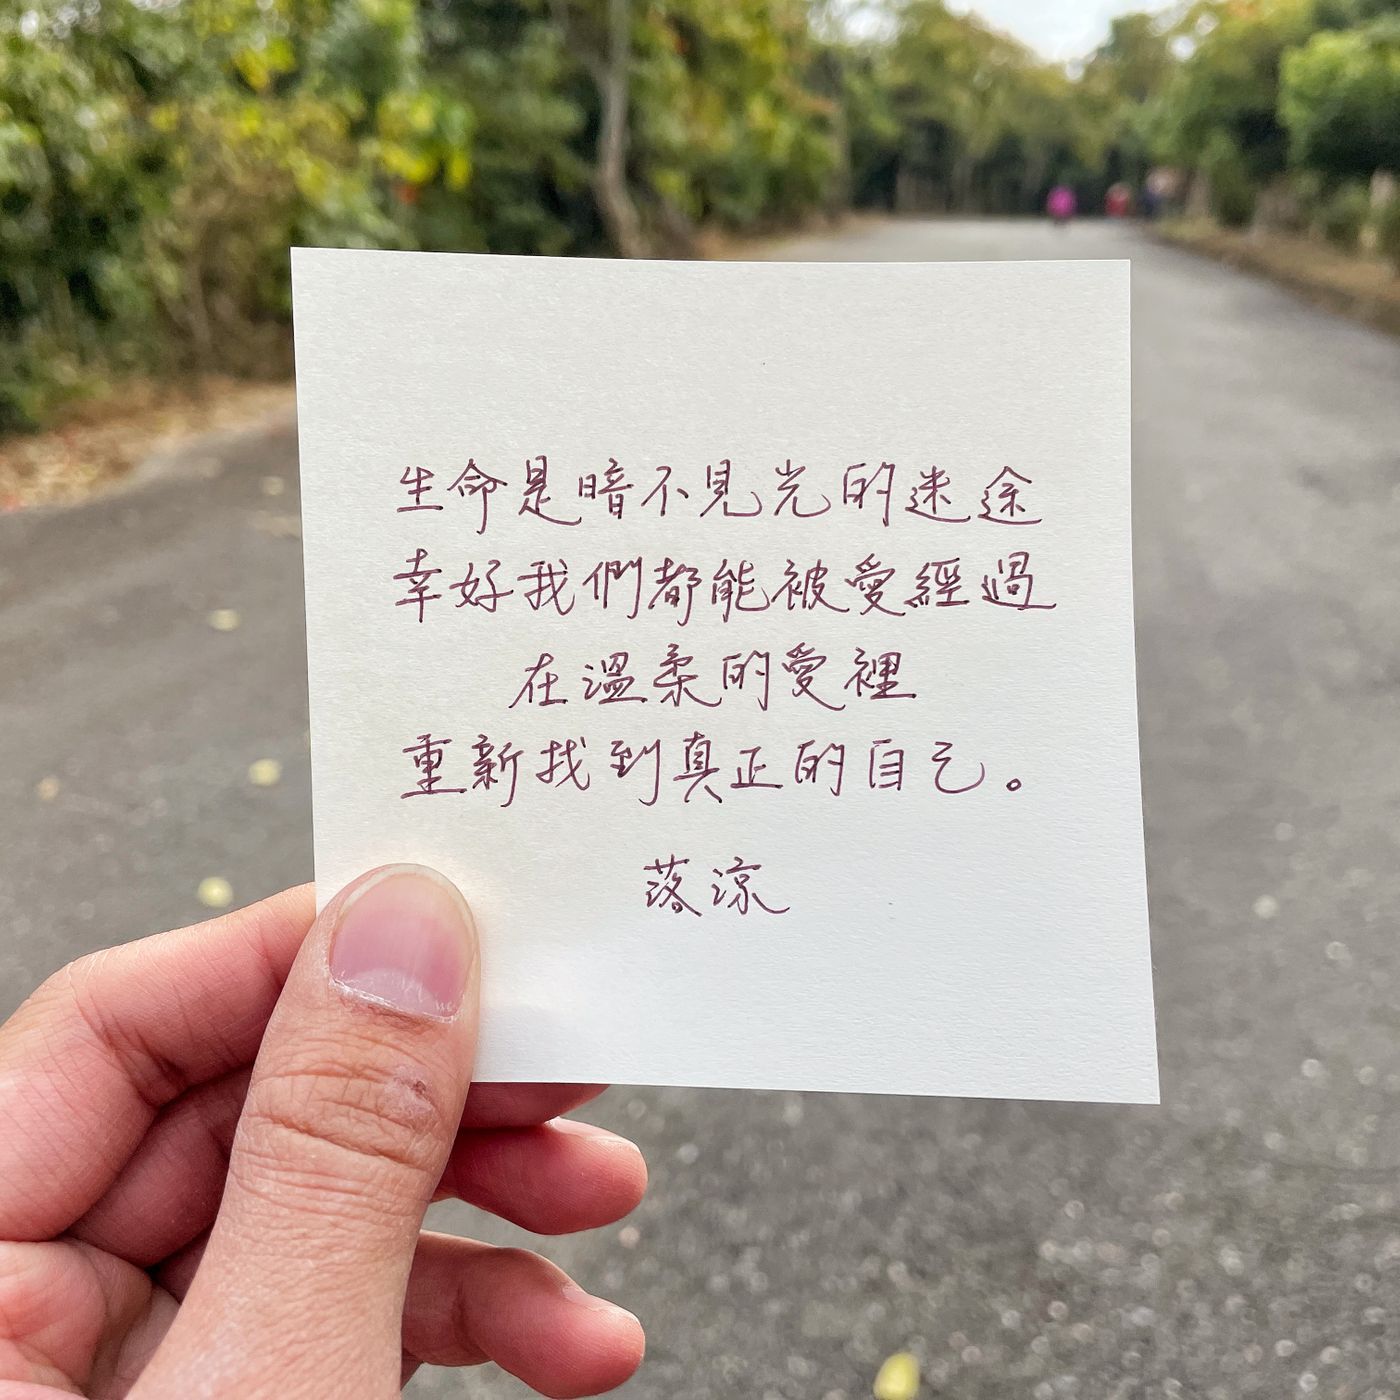 生命是暗不見光的迷途
幸好我們都能被愛經過
在溫柔的愛裡
重新找到真正的自己。
落涼